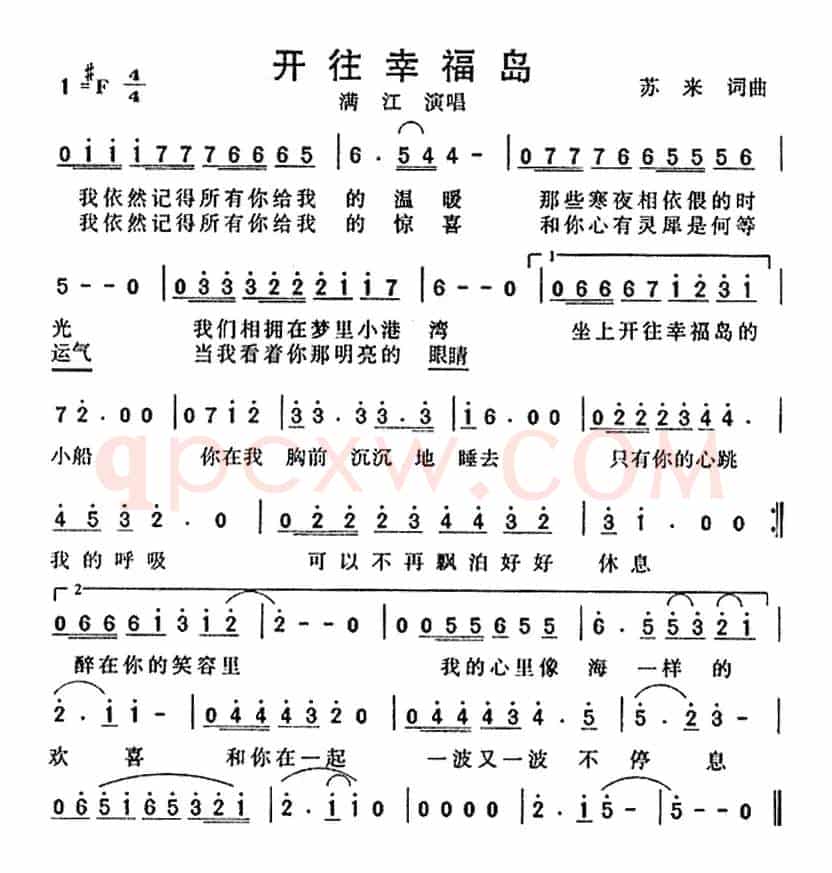 开往幸福岛
1=#F 4/4
满江 演唱
苏来 词曲
0 i i i 7 7 7 6 6 6 5 | 6 . 5 4 4 - | 0 7 7 7 6 6 5 5 5 6 |
我依然记得所有你给我 的 温 暖 那些寒夜相依偎的时
我依然记得所有你给我 的 惊 喜 和你心有灵犀是何等
1
5 - - 0 | 0 3̇ 3̇ 3̇ 2̇ 2̇ 2̇ i i 7 | 6 - - 0 | 0 6 6 6 7 i 2̇ 3̇ i |
光 我们相拥在梦里小港 湾 坐上开往幸福岛的
运气 当我看着你那明亮的 眼睛
7 2̇ . 0 0 | 0 7 i 2̇ | 3̇ 3̇ . 3̇ 3̇ . 3̇ | i 6 . 0 0 | 0 2̇ 2̇ 2̇ 3̇ 4̇ 4̇ .
小船 你在我 胸前 沉沉 地 睡去 只有你的心跳
qpcxw.com
4̇ 5̇ 3̇ 2̇ . 0 | 0 2̇ 2̇ 2̇ 3̇ 4̇ 4̇ 3̇ 2̇ | 3̇ i . 0 0 :‖
我 的 呼 吸 可 以 不 再 飘 泊 好 好 休 息
2
0 6 6 6 i 3̇ i 2̇ | 2̇ - - 0 | 0 0 5 5 6 5 5 | 6 . 5̇ 5̇ 3̇ 2̇ i
醉在你的笑容里 我的心里像 海 一样 的
2̇ . i i - | 0 4̇ 4̇ 4̇ 3̇ 2̇ 0 | 0 4̇ 4̇ 4̇ 3̇ 4̇ . 5̇ | 5̇ . 2̇ 3̇ -
欢 喜 和你在一起 一波又一波 不 停 息
0 6̇ 5̇ i 6̇ 5̇ 3̇ 2̇ i | 2̇ . i i 0 | 0 0 0 0 | 2̇ . i 5̇ - | 5̇ - - 0 ‖